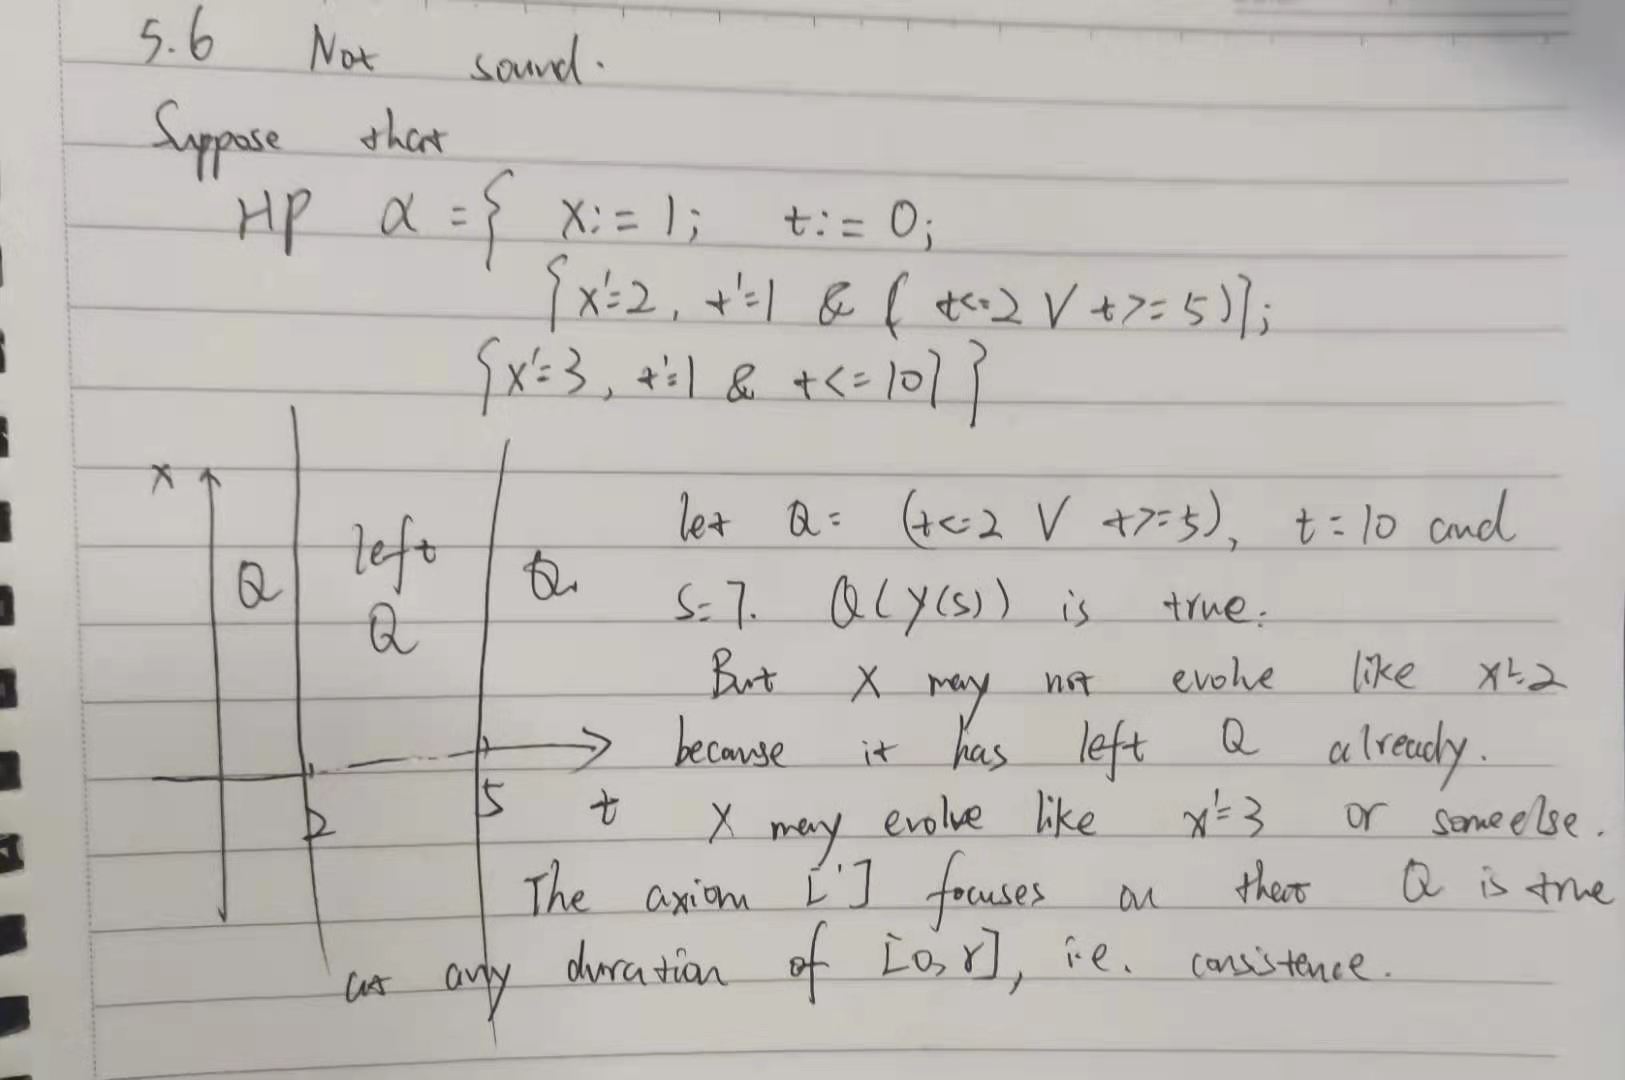 5.6 Not sound.
Suppose that
HP α = { x := 1; t := 0;
{x'=2, t'=1 & ( t<=2 V t>=5)};
{x'=3, t'=1 & t<=10} }
x
Q
left
Q
Q
2
5
t
let Q = (t<=2 V t>=5), t = 10 and
s=7. Q(y(s)) is true.
But x may not evolve like x'=2
because it has left Q already.
x may evolve like x'=3 or someelse.
The axiom ['] focuses on that Q is true
at any duration of [0, r], i.e. consistence.